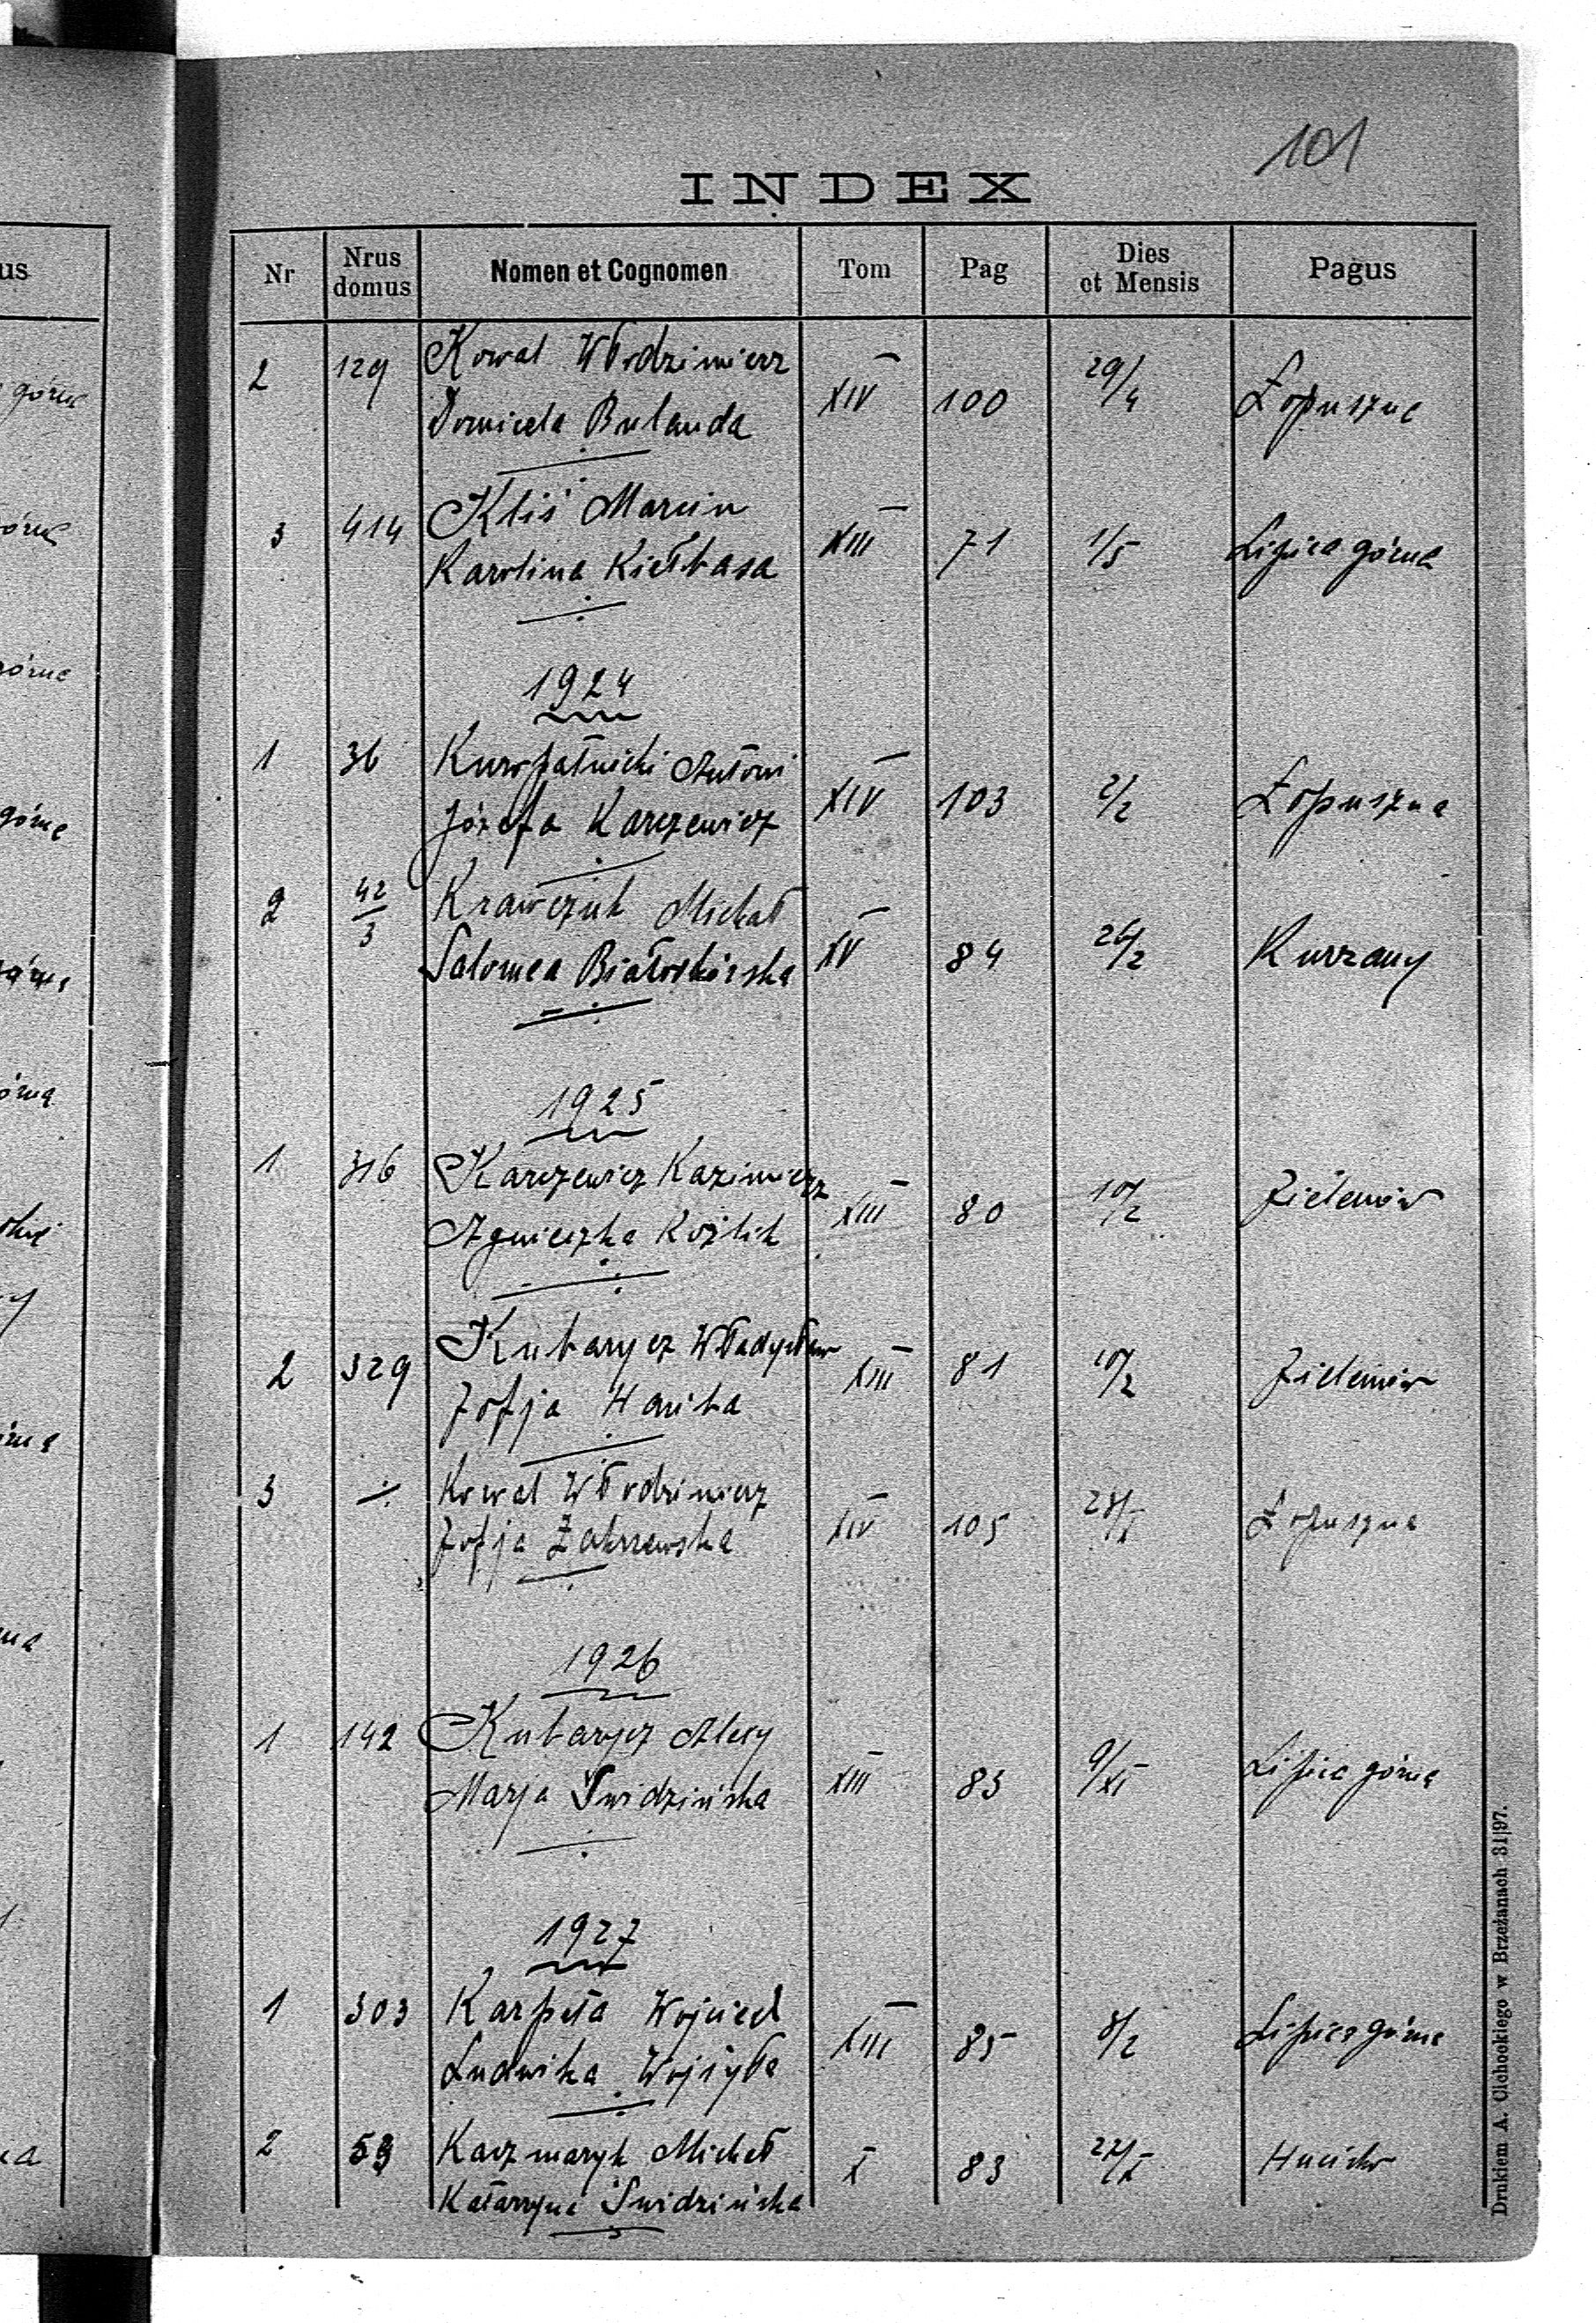 101
INDEX
Nr Nrus domus Nomen et Cognomen Tom Pag Dies et Mensis Pagus
2 129 Kowal Włodzimierz
Domicela Bulanda XIV 100 29/4 Łopuszna
3 414 Kliś Marcin
Karolina Kiełbasa XIII 71 1/5 Lipica górna
1924
1 36 Kuropatnicki Antoni
Józefa Karczewicz XIV 103 2/2 Łopuszna
2 42/3 Krawczuk Michał
Salomea Białoskórska XV 84 26/2 Kurzany
1925
1 316 Karczewicz Kazimierz
Agnieszka Koźlik XIII 80 10/2 Zielenów
2 329 Kubarycz Władysław
Zofja Haniba XIII 81 10/2 Zielenów
3 ÷ Kowal Włodzimierz
Zofja Zakrzewska XIV 105 28/X Łopuszna
1926
1 142 Kubarycz Alexy
Marja Świdzińska XIII 83 9/XI Lipica górna
1927
1 303 Karpeta Wojciech
Ludwika Wojtyła XIII 85 8/2 Lipica górna
2 59 Kaczmaryk Michał
Katarzyna Świdzińska X 83 22/X Hucisko
Drukiem A. Cichockiego w Brzeżanach 31|97.
us
górna